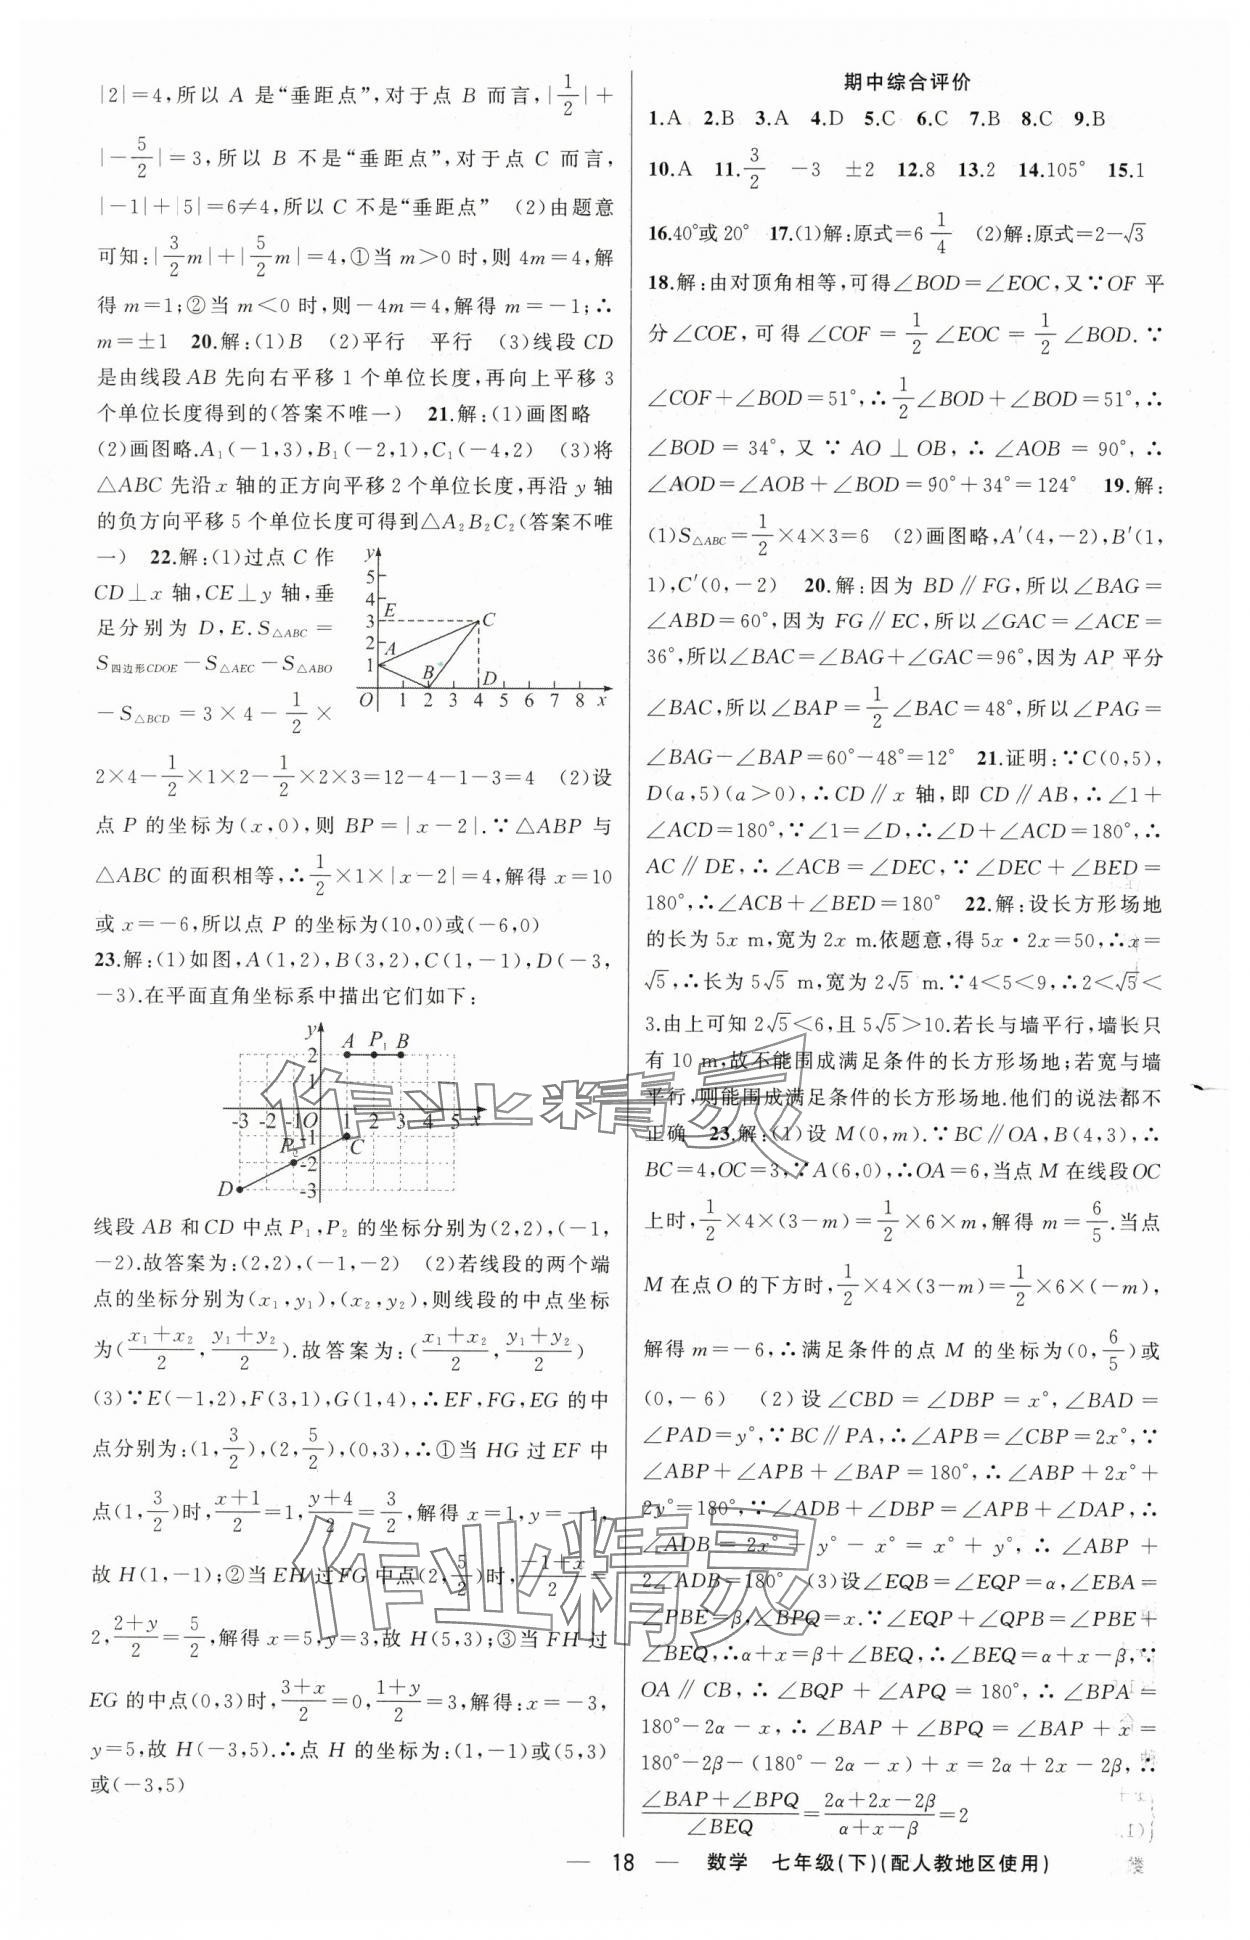 |2|=4,所以 A 是“垂距点”,对于点 B 而言,|1/2|+
|-5/2|=3,所以 B 不是“垂距点”,对于点 C 而言,
|-1|+|5|=6≠4,所以 C 不是“垂距点” (2)由题意
可知:|3/2 m|+|5/2 m|=4,①当 m>0 时,则 4m=4,解
得 m=1;②当 m<0 时,则-4m=4,解得 m=-1;∴
m=±1 20.解:(1)B (2)平行 平行 (3)线段 CD
是由线段 AB 先向右平移 1 个单位长度,再向上平移 3
个单位长度得到的(答案不唯一) 21.解:(1)画图略
(2)画图略.A₁(-1,3),B₁(-2,1),C₁(-4,2) (3)将
△ABC 先沿 x 轴的正方向平移 2 个单位长度,再沿 y 轴
的负方向平移 5 个单位长度可得到△A₂B₂C₂(答案不唯
一) 22.解:(1)过点 C 作
CD⊥x 轴,CE⊥y 轴,垂
足分别为 D,E.S△ABC=
S四边形CDOE-S△AEC-S△ABO
-S△BCD=3×4-1/2×
y
5
4
3
2
1
E
C
A
B
D
O 1 2 3 4 5 6 7 8 x
2×4-1/2×1×2-1/2×2×3=12-4-1-3=4 (2)设
点 P 的坐标为(x,0),则 BP=|x-2|.∵△ABP 与
△ABC 的面积相等,∴1/2×1×|x-2|=4,解得 x=10
或 x=-6,所以点 P 的坐标为(10,0)或(-6,0)
23.解:(1)如图,A(1,2),B(3,2),C(1,-1),D(-3,
-3).在平面直角坐标系中描出它们如下:
y
A P₁ B
2
1
-3 -2 -1O 1 2 3 4 5 x
-1
P₂ C
-2
D -3
线段 AB 和 CD 中点 P₁,P₂ 的坐标分别为(2,2),(-1,
-2).故答案为:(2,2),(-1,-2) (2)若线段的两个端
点的坐标分别为(x₁,y₁),(x₂,y₂),则线段的中点坐标
为((x₁+x₂)/2,(y₁+y₂)/2).故答案为:((x₁+x₂)/2,(y₁+y₂)/2)
(3)∵E(-1,2),F(3,1),G(1,4),∴EF,FG,EG 的中
点分别为:(1,3/2),(2,5/2),(0,3),∴①当 HG 过 EF 中
点(1,3/2)时,(x+1)/2=1,(y+4)/2=3/2,解得 x=1,y=-1,
故 H(1,-1);②当 EH 过 FG 中点(2,5/2)时,(-1+x)/2=
2,(2+y)/2=5/2,解得 x=5,y=3,故 H(5,3);③当 FH 过
EG 的中点(0,3)时,(3+x)/2=0,(1+y)/2=3,解得:x=-3,
y=5,故 H(-3,5).∴点 H 的坐标为:(1,-1)或(5,3)
或(-3,5)
期中综合评价
1.A 2.B 3.A 4.D 5.C 6.C 7.B 8.C 9.B
10.A 11.3/2 -3 ±2 12.8 13.2 14.105° 15.1
16.40°或 20° 17.(1)解:原式=6 1/4 (2)解:原式=2-√3
18.解:由对顶角相等,可得∠BOD=∠EOC,又∵OF 平
分∠COE,可得∠COF=1/2∠EOC=1/2∠BOD.∵
∠COF+∠BOD=51°,∴1/2∠BOD+∠BOD=51°,∴
∠BOD=34°,又∵AO⊥OB,∴∠AOB=90°,∴
∠AOD=∠AOB+∠BOD=90°+34°=124° 19.解:
(1)S△ABC=1/2×4×3=6 (2)画图略,A′(4,-2),B′(1,
1),C′(0,-2) 20.解:因为 BD∥FG,所以∠BAG=
∠ABD=60°,因为 FG∥EC,所以∠GAC=∠ACE=
36°,所以∠BAC=∠BAG+∠GAC=96°,因为 AP 平分
∠BAC,所以∠BAP=1/2∠BAC=48°,所以∠PAG=
∠BAG-∠BAP=60°-48°=12° 21.证明:∵C(0,5),
D(a,5)(a>0),∴CD∥x 轴,即 CD∥AB,∴∠1+
∠ACD=180°,∵∠1=∠D,∴∠D+∠ACD=180°,∴
AC∥DE,∴∠ACB=∠DEC,∵∠DEC+∠BED=
180°,∴∠ACB+∠BED=180° 22.解:设长方形场地
的长为 5x m,宽为 2x m.依题意,得 5x·2x=50,∴x=
√5,∴长为 5√5 m,宽为 2√5 m.∵4<5<9,∴2<√5<
3.由上可知 2√5<6,且 5√5>10.若长与墙平行,墙长只
有 10 m,故不能围成满足条件的长方形场地;若宽与墙
平行,则能围成满足条件的长方形场地.他们的说法都不
正确 23.解:(1)设 M(0,m).∵BC∥OA,B(4,3),∴
BC=4,OC=3,∵A(6,0),∴OA=6,当点 M 在线段 OC
上时,1/2×4×(3-m)=1/2×6×m,解得 m=6/5.当点
M 在点 O 的下方时,1/2×4×(3-m)=1/2×6×(-m),
解得 m=-6,∴满足条件的点 M 的坐标为(0,6/5)或
(0,-6) (2)设∠CBD=∠DBP=x°,∠BAD=
∠PAD=y°,∵BC∥PA,∴∠APB=∠CBP=2x°,∵
∠ABP+∠APB+∠BAP=180°,∴∠ABP+2x°+
2y°=180°,∵∠ADB+∠DBP=∠APB+∠DAP,∴
∠ADB=2x°+y°-x°=x°+y°,∴∠ABP+
2∠ADB=180° (3)设∠EQB=∠EQP=α,∠EBA=
∠PBE=β,∠BPQ=x.∵∠EQP+∠QPB=∠PBE+
∠BEQ,∴α+x=β+∠BEQ,∴∠BEQ=α+x-β,∵
OA∥CB,∴∠BQP+∠APQ=180°,∴∠BPA=
180°-2α-x,∴∠BAP+∠BPQ=∠BAP+x=
180°-2β-(180°-2α-x)+x=2α+2x-2β,∴
(∠BAP+∠BPQ)/∠BEQ=(2α+2x-2β)/(α+x-β)=2
作业精灵
作业精灵
— 18 — 数学 七年级(下)(配人教地区使用)